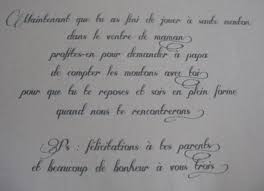 Maintenant que tu as fini de jouer à saute mouton
dans le ventre de maman
profites-en pour demander à papa
de compter les moutons avec toi
pour que tu te reposes et sois en plein forme
quand nous te rencontrerons
Ps : félicitations à tes parents
et beaucoup de bonheur à vous trois